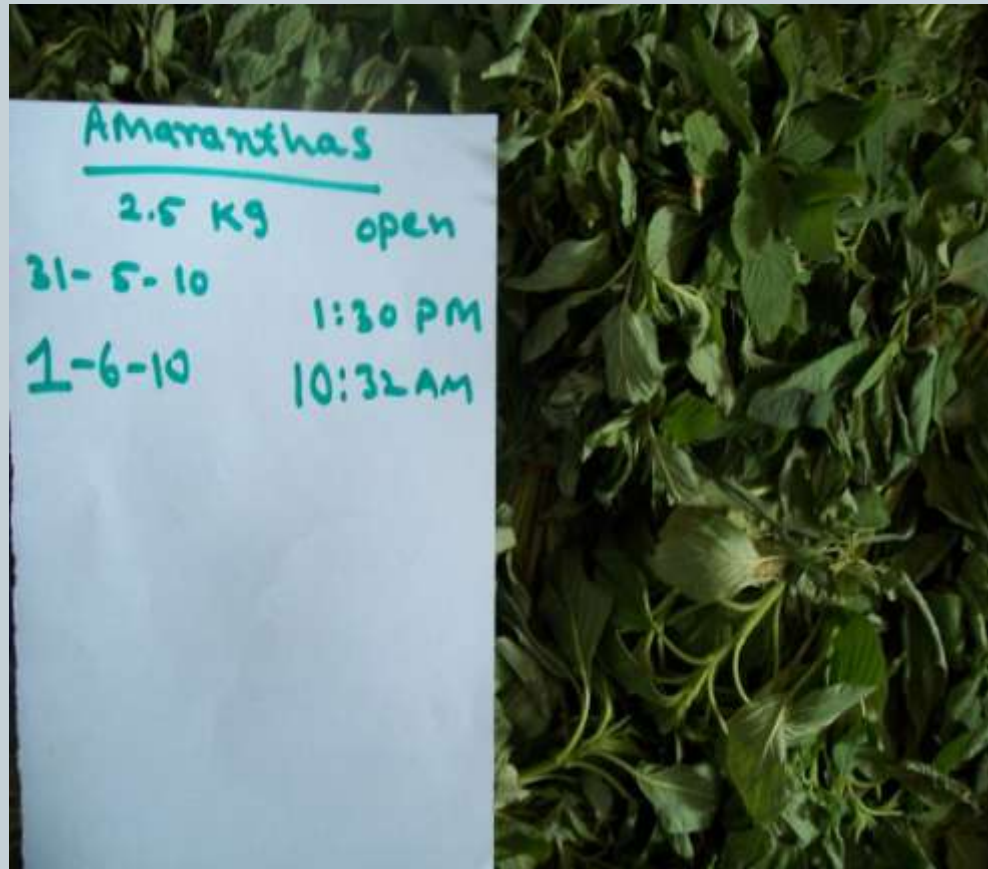 Amaranthas
2.5 Kg open
31-5-10 1:30 PM
1-6-10 10:32 AM